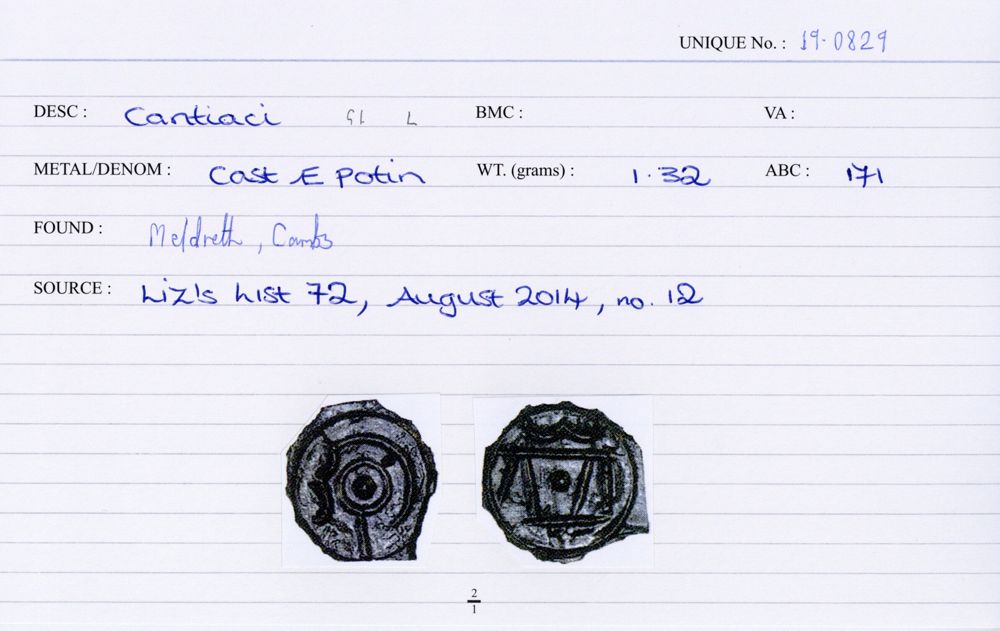 UNIQUE No. : 19.0829
DESC : Cantiaci GI L BMC : VA :
METAL/DENOM : Cast Æ Potin WT. (grams) : 1.32 ABC : 171
FOUND : Meldreth, Cambs
SOURCE : Liz's List 72, August 2014, no. 12
2
1